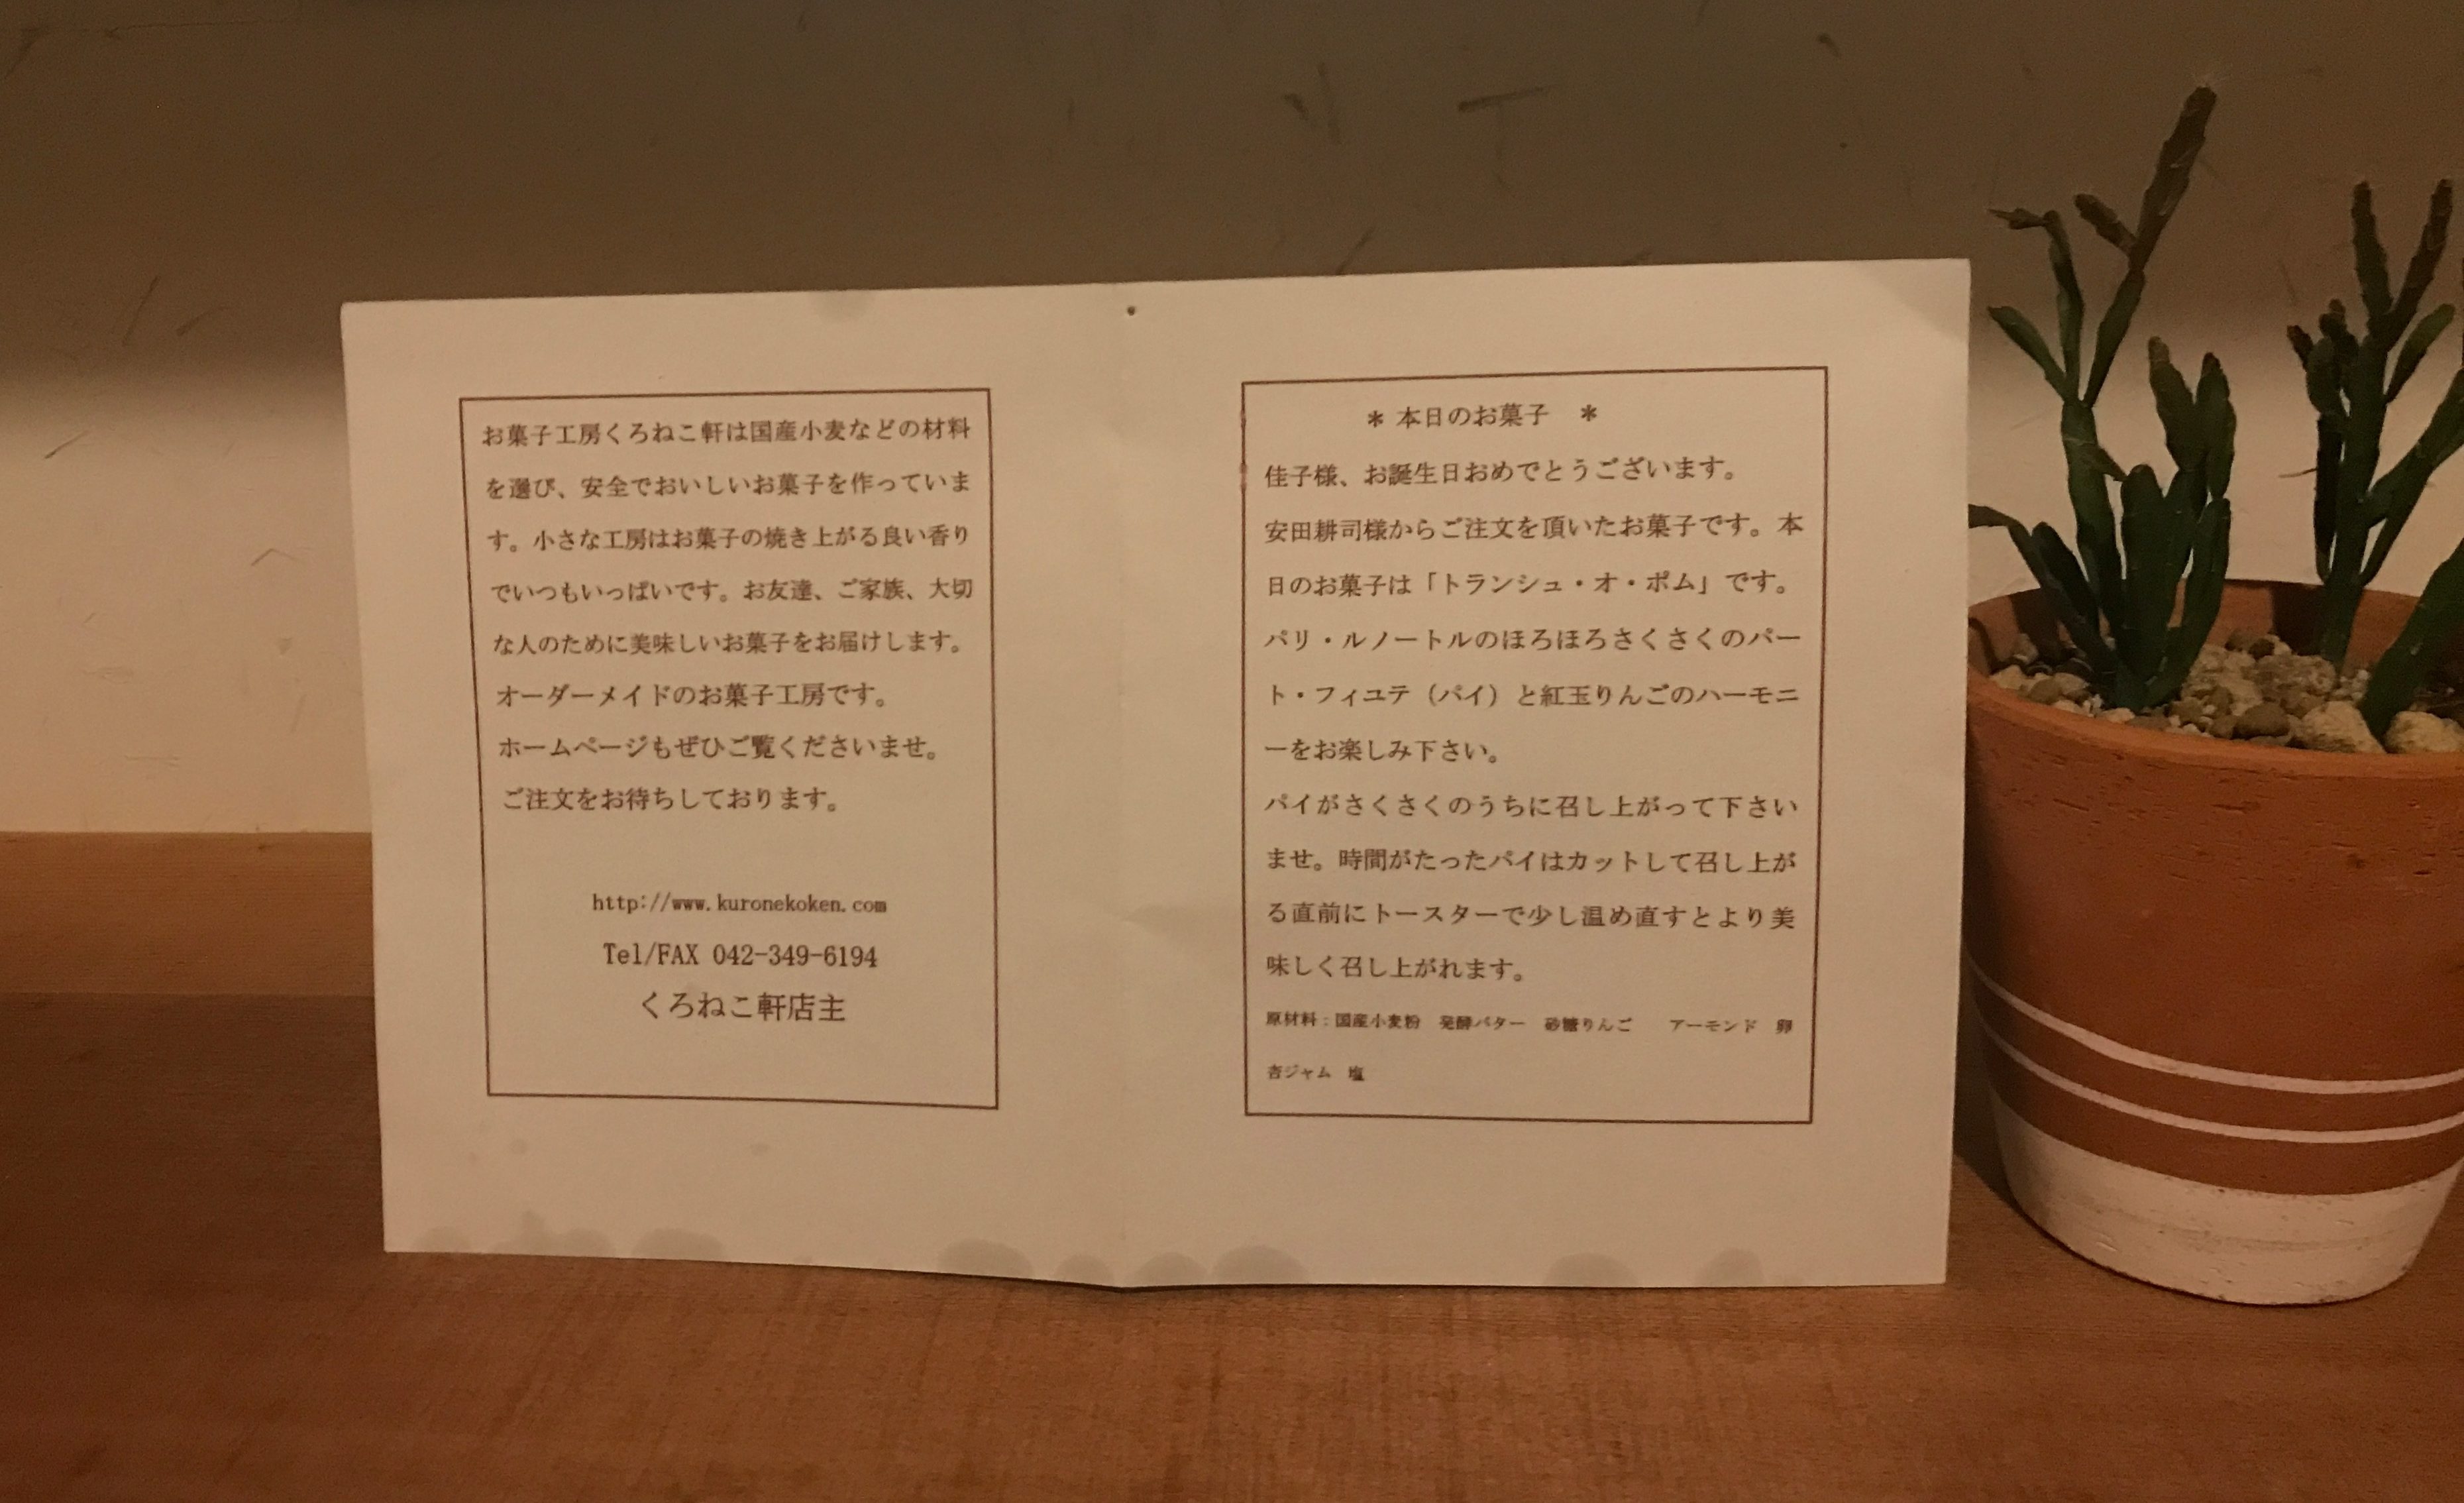 お菓子工房くろねこ軒は国産小麦などの材料
を選び、安全でおいしいお菓子を作っていま
す。小さな工房はお菓子の焼き上がる良い香り
でいつもいっぱいです。お友達、ご家族、大切
な人のために美味しいお菓子をお届けします。
オーダーメイドのお菓子工房です。
ホームページもぜひご覧くださいませ。
ご注文をお待ちしております。
http://www.kuronekoken.com
Tel/FAX 042-349-6194
くろねこ軒店主
＊ 本日のお菓子 ＊
佳子様、お誕生日おめでとうございます。
安田耕司様からご注文を頂いたお菓子です。本
日のお菓子は「トランシュ・オ・ポム」です。
パリ・ルノートルのほろほろさくさくのパー
ト・フィユテ（パイ）と紅玉りんごのハーモニ
ーをお楽しみ下さい。
パイがさくさくのうちに召し上がって下さい
ませ。時間がたったパイはカットして召し上が
る直前にトースターで少し温め直すとより美
味しく召し上がれます。
原材料：国産小麦粉　発酵バター　砂糖りんご　アーモンド　卵
杏ジャム　塩